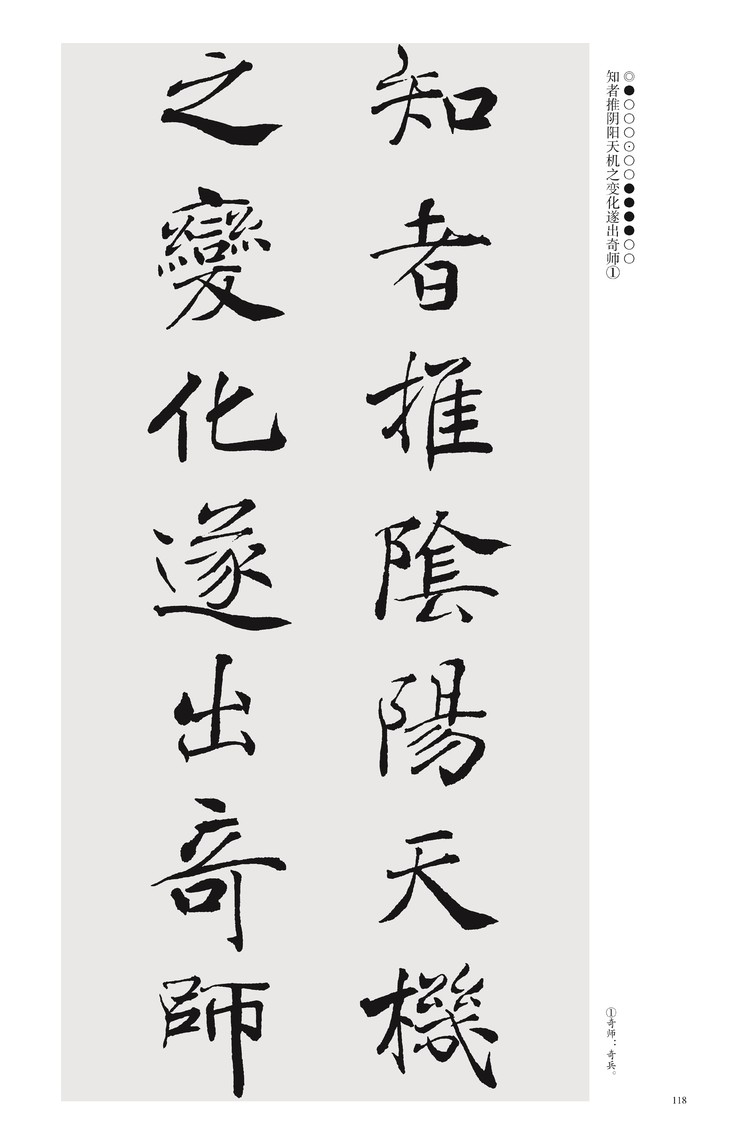 ◎●○○○⊙○○●●●●○○
知者推阴阳天机之变化遂出奇师①
知者推陰陽天機
之變化遂出奇師
①奇师：奇兵。
118